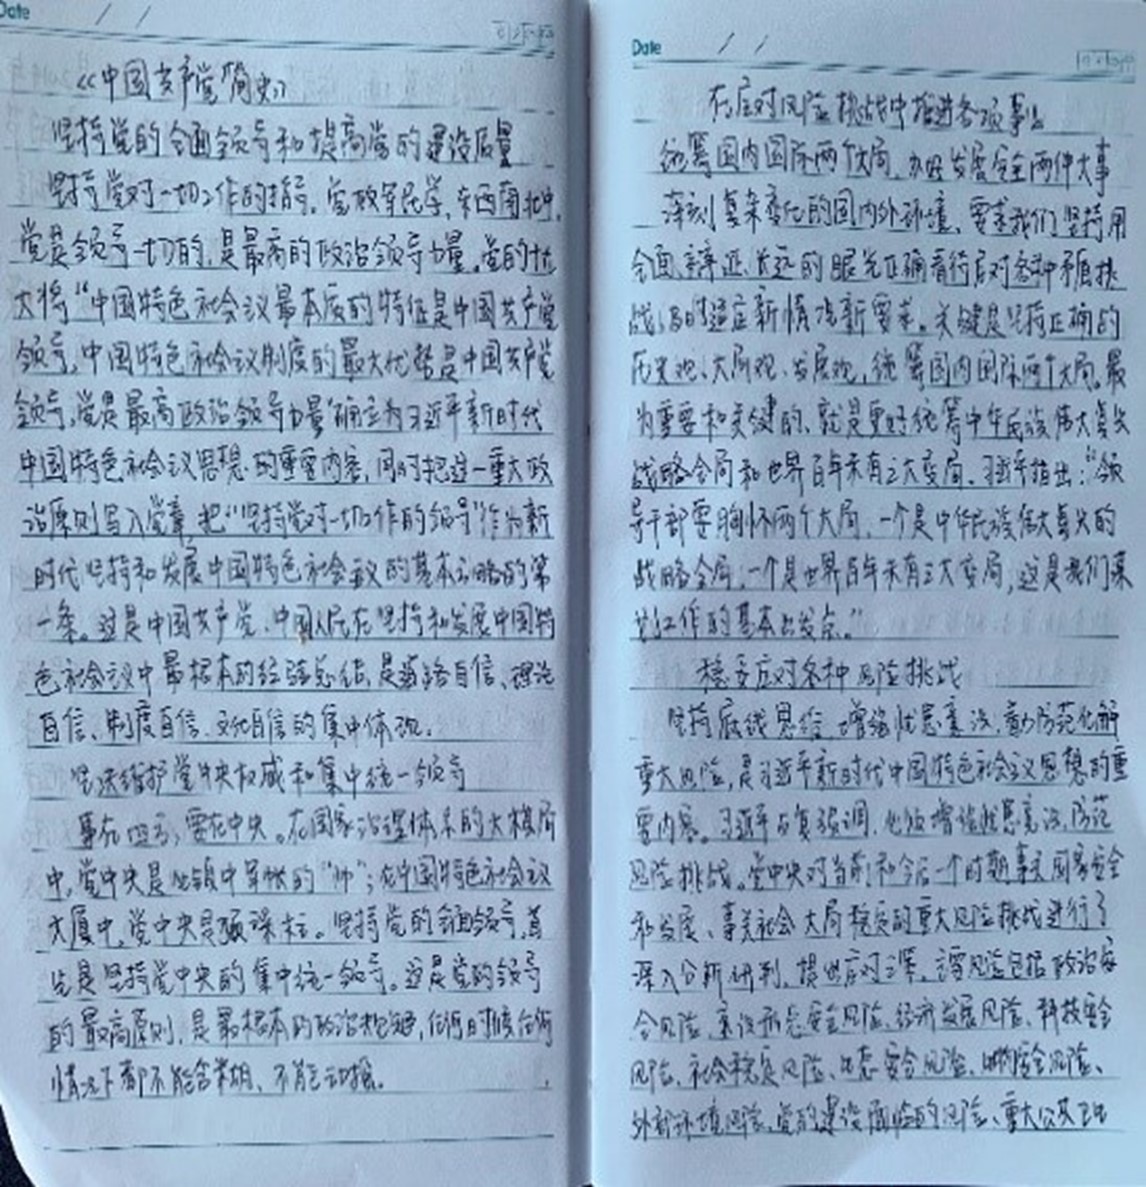 Date / /
《中国共产党简史》
坚持党的全面领导和提高党的建设质量
坚持党对一切工作的指导。党政军民学,东西南北中,
党是领导一切的,是最高的政治领导力量。党的十九
大将“中国特色社会议最本质的特征是中国共产党
领导,中国特色社会议制度的最大优势是中国共产党
领导,党是最高政治领导力量”确立为习近平新时代
中国特色社会议思想的重要内容,同时把这一重大政
治原则写入党章,把“坚持党对一切工作的领导”作为新
时代坚持和发展中国特色社会主议的基本方略的第
一条。这是中国共产党、中国人民在坚持和发展中国特
色社会议中最根本的经验总结,是道路自信、理论
自信、制度自信、文化自信的集中体现。
坚决维护党中央权威和集中统一领导
事在四方,要在中央。在国家治理体系的大棋局
中,党中央是坐镇中军帐的“帅”;在中国特色社会议
大厦中,党中央是顶梁柱。坚持党的全面领导,首
先是坚持党中央的集中统一领导。这是党的领导
的最高原则,是最根本的政治规矩,任何时候任何
情况下都不能含糊、不能动摇。
Date / /
在应对风险挑战中推进各项事业
统筹国内国际两个大局,办好发展安全两件大事
深刻复杂变化的国内外环境,要求我们坚持用
全面、辩证、长远的眼光正确看待应对各种矛盾挑
战,及时适应新情况新要求。关键是坚持正确的
历史观、大局观、发展观,统筹国内国际两个大局。最
为重要和关键的,就是更好统筹中华民族伟大复兴
战略全局和世界百年未有之大变局。习近平指出:“领
导干部要胸怀两个大局,一个是中华民族伟大复兴的
战略全局,一个是世界百年未有之大变局,这是我们谋
划工作的基本出发点。”
稳妥应对各种风险挑战
坚持底线思维,增强忧患意识,着力防范化解
重大风险,是习近平新时代中国特色社会议思想的重
要内容。习近平反复强调,必须增强忧患意识,防范
风险挑战。党中央对当前和今后一个时期事关国家安全
和发展、事关社会大局稳定的重大风险挑战进行了
深入分析研判,提出应对之策,主要风险包括政治安
全风险、意识形态安全风险、经济发展风险、科技安全
风险、社会稳定风险、生态安全风险、生物安全风险、
外部环境风险、党的建设面临的风险、重大公共卫生